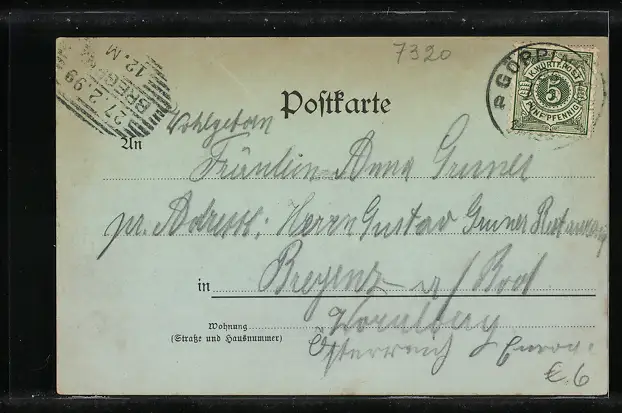 7320
27.2.99
BREGE
12. M
GÖPPIN
K.WÜRTT.POST
5
FÜNF PFENNIG
Postkarte
Wohlgeborn
An Fräulein Anna Greiner
pr. Adresse: Herrn Gustav Greiner
in Bregenz a/ Bod
Wohnung Vorarlberg
(Straße und Hausnummer) Österreich
E.6